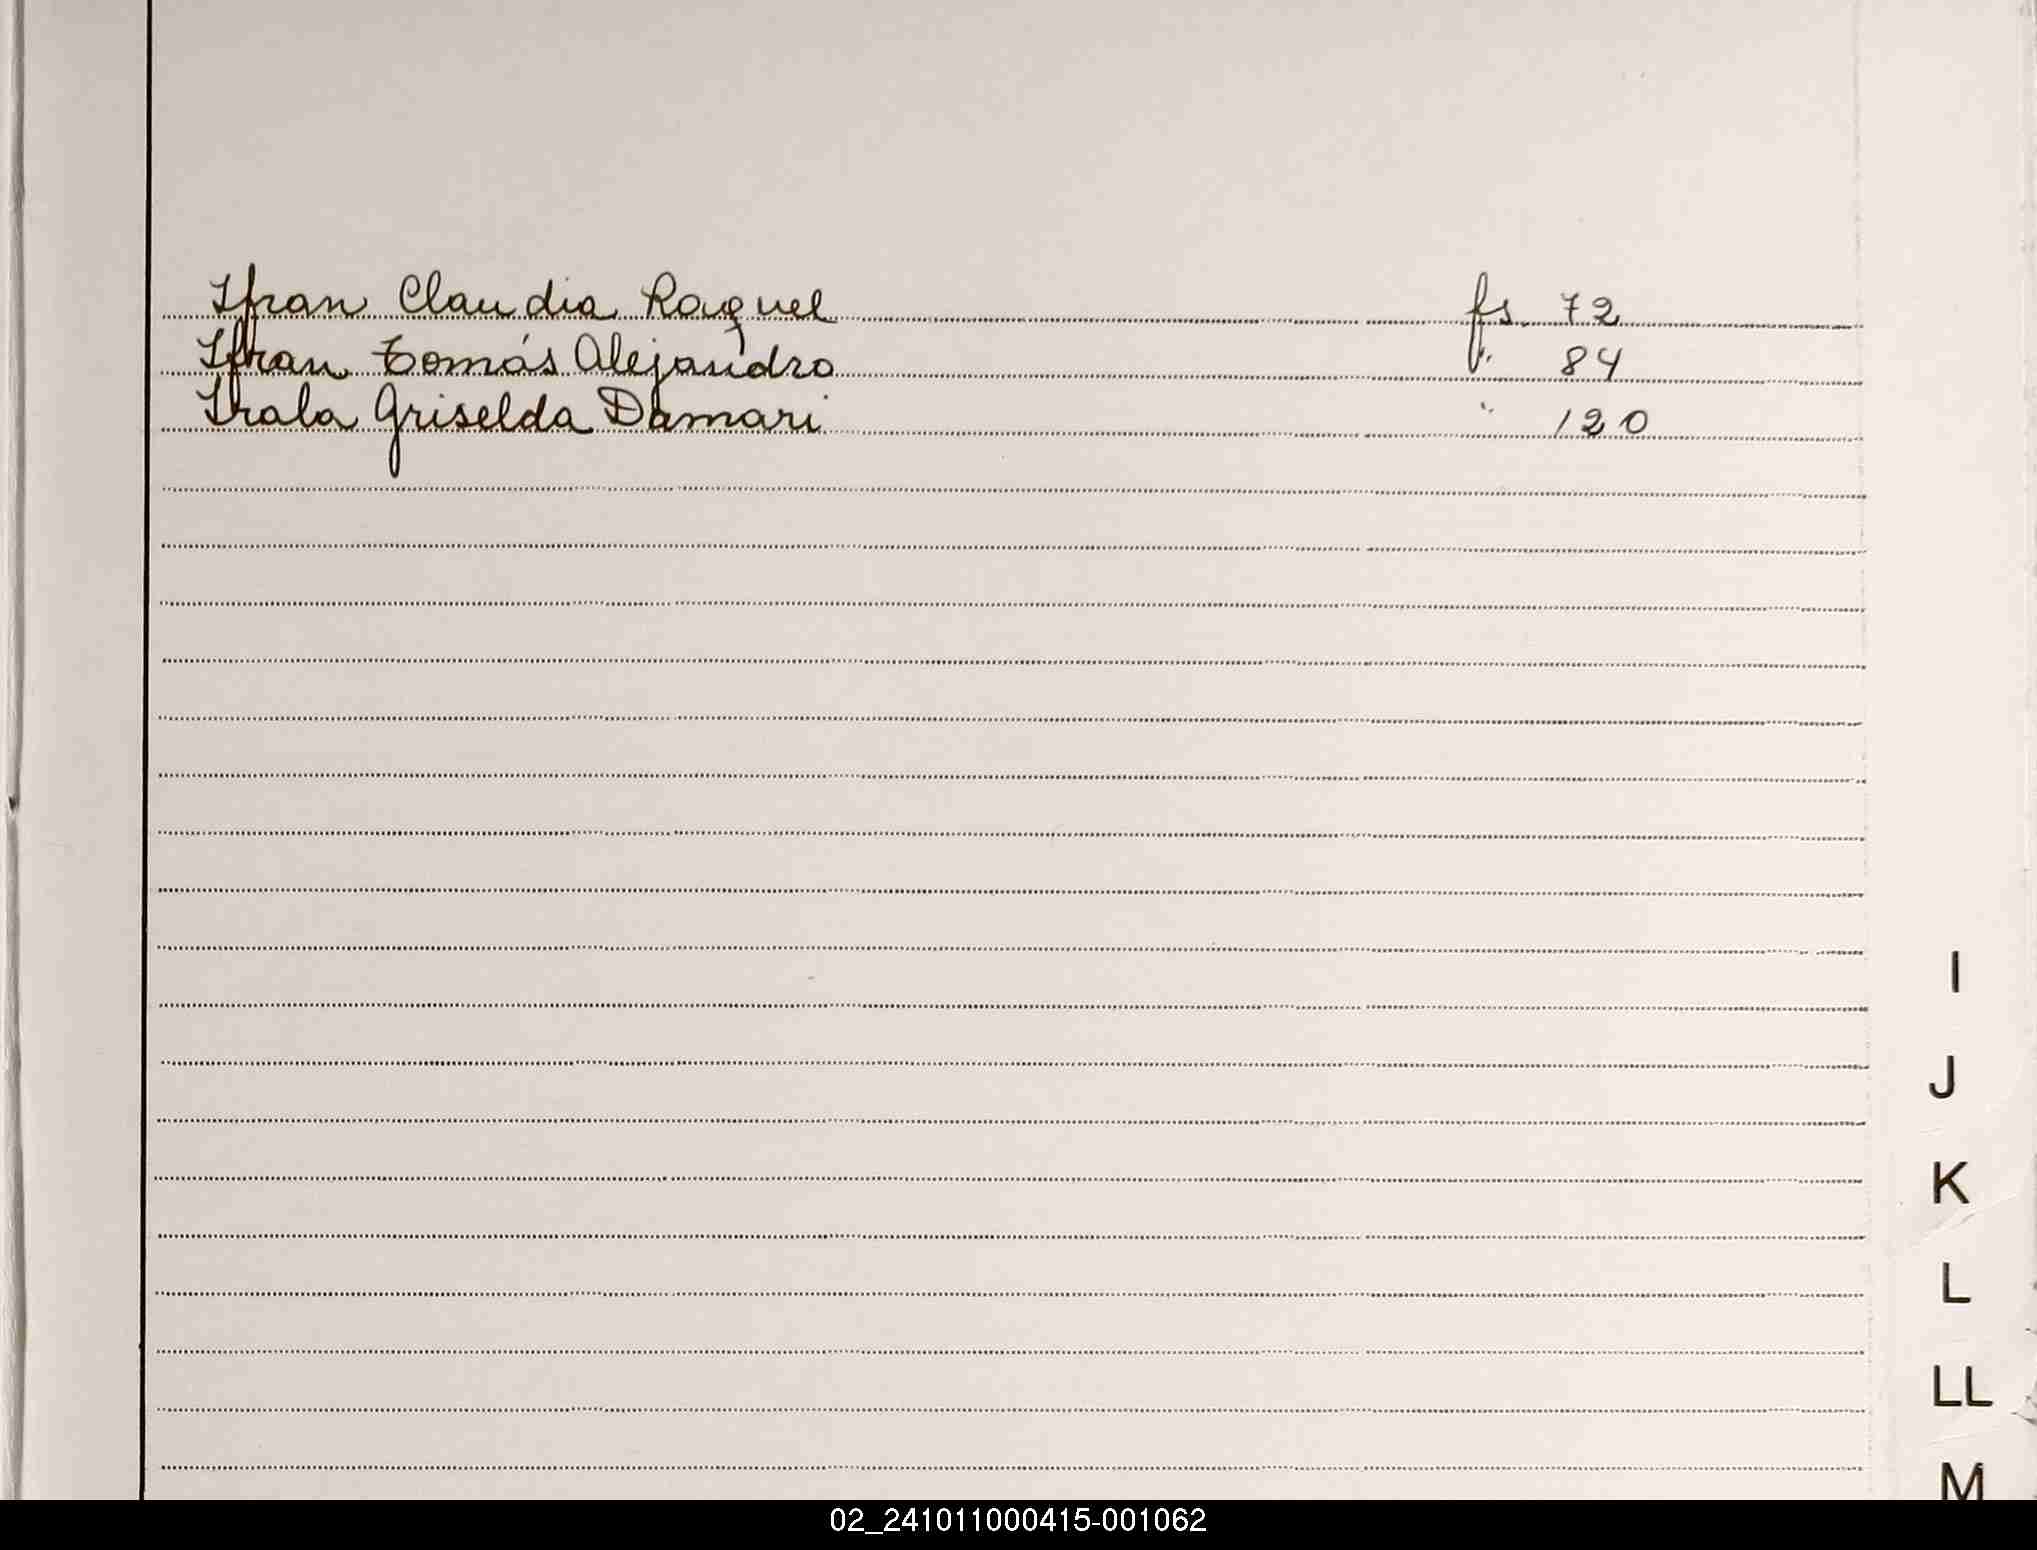 Ifran Claudia Raquel fs. 72
Ifran Tomás Alejandro " 84
Irala Griselda Damari " 120
I
J
K
L
LL
M
02_241011000415-001062